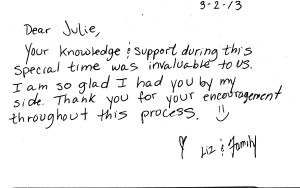 3-2-13
Dear Julie,
Your knowledge & support during this
special time was invaluable to us.
I am so glad I had you by my
side. Thank you for your encouragement
throughout this process.
Liz & Family